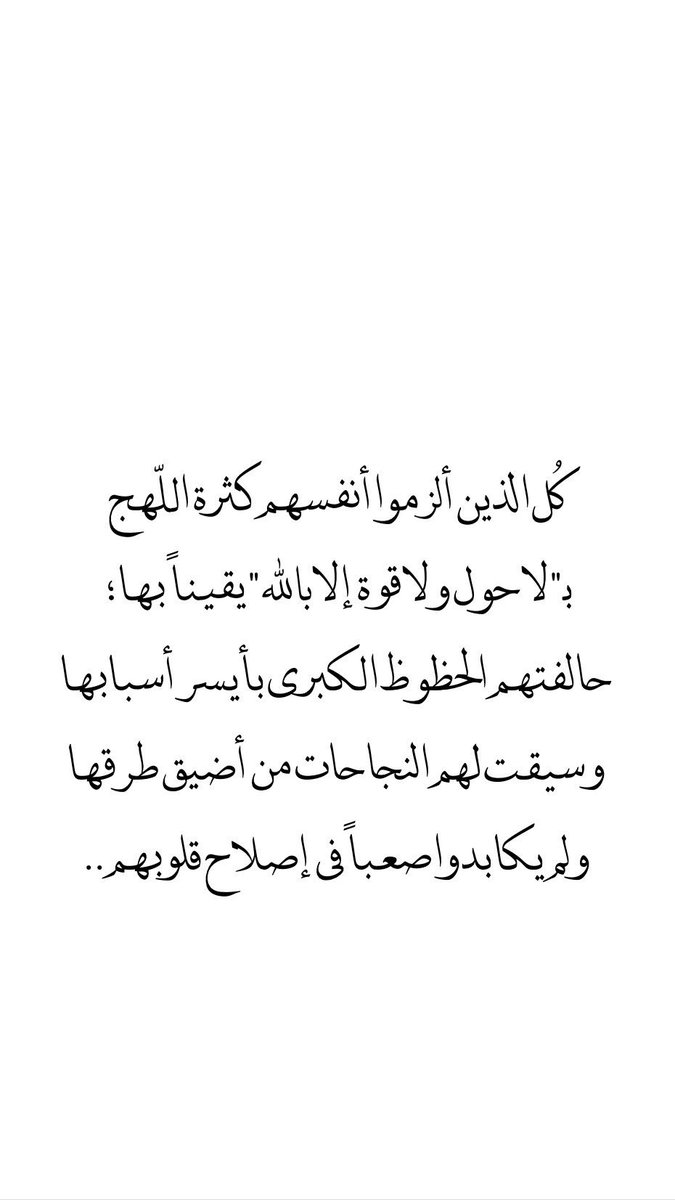 كُل الذين ألزموا أنفسهم كثرة اللّهج
بـ"لا حول ولا قوة إلا بالله" يقيناً بها؛
حالفتهم الحظوظ الكبرى بأيسر أسبابها
وسيقت لهم النجاحات من أضيق طرقها
ولم يكابدوا صعباً في إصلاح قلوبهم..